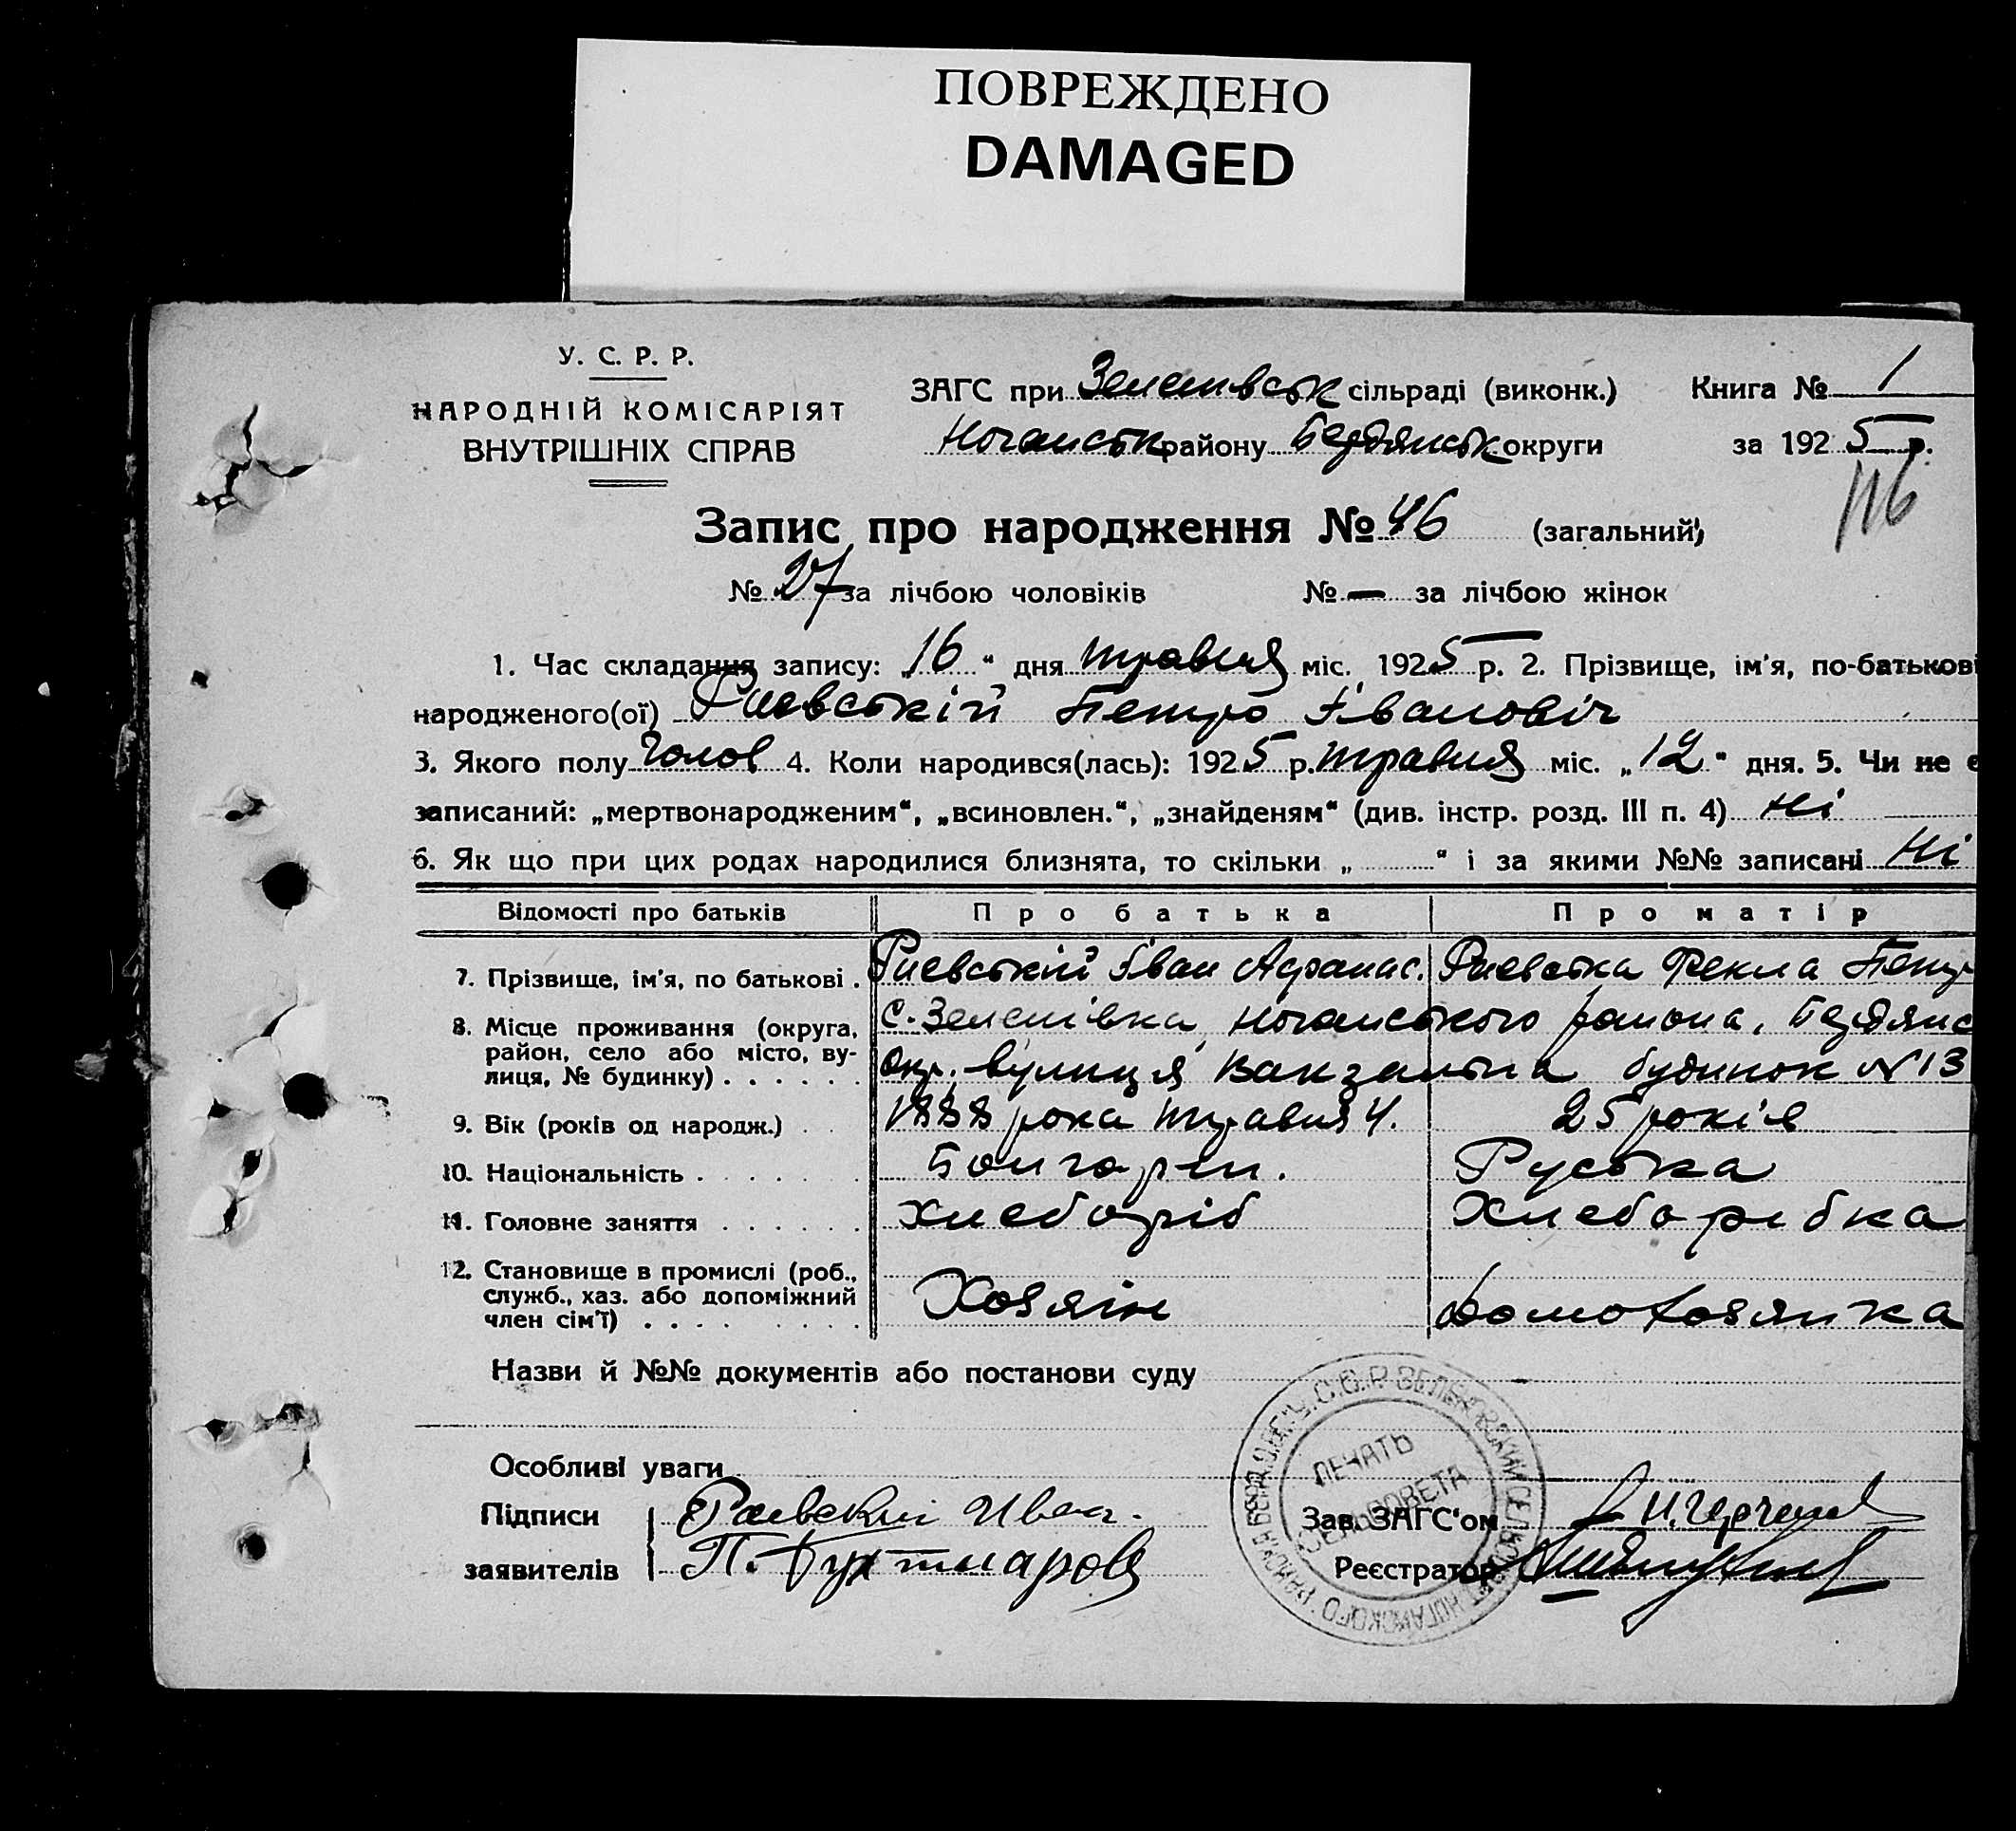 ПОВРЕЖДЕНО
DAMAGED
У. С. Р. Р.
НАРОДНІЙ КОМІСАРІЯТ
ВНУТРІШНІХ СПРАВ
ЗАГС при Зеленівськ сільраді (виконк.) Книга № 1
Ногайськ району Бердянськ округи за 1925 р.
116
Запис про народження № 46 (загальний)
№ 27 за лічбою чоловіків № — за лічбою жінок
1. Час складання запису: „16“ дня травня міс. 1925 р. 2. Прізвище, ім'я, по-батькові
народженого(ої) Раєвській Петро Іванович
3. Якого полу Чолов 4. Коли народився(лась): 1925 р. травня міс. „12“ дня. 5. Чи не є
записаний: „мертвонародженим“, „всиновлен.“, „знайденям“ (див. інстр. розд. III п. 4) Ні
6. Як що при цих родах народилися близнята, то скільки „ “ і за якими №№ записані Ні
Відомості про батьків Про батька Про матір
7. Прізвище, ім'я, по батькові . Раєвській Іван Афанас. Раєвська Фекла Петр
8. Місце проживання (округа, район, село або місто, вулиця, № будинку) . . . . . . с. Зеленівка Ногайського района, Бердянс
окр. вулиця Вакзальна будинок № 13
9. Вік (років од народж.) . . 1888 рока травня 4. 25 років
10. Національність . . . . . . Болгарин. Руська
11. Головне заняття . . . . . . Хлебороб Хлеборобка
12. Становище в промислі (роб., служб., хаз. або допоміжний член сім'ї) . . . . . . . . . Хозяїн Домохозяйка
Назви й №№ документів або постанови суду
Особливі уваги
Підписи Раевский Иван. Зав. ЗАГС'ом
заявителів П. Реєстратор
ПЕЧАТЬ
СЕЛЬСОВЕТА